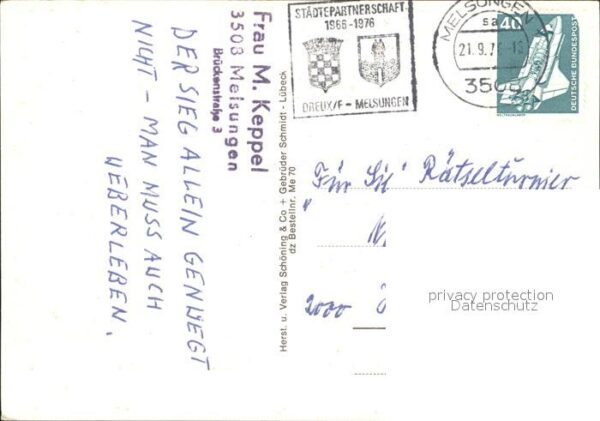 DER SIEG ALLEIN GENÜEGT
NICHT - MAN MUSS AUCH
UEBERLEBEN.
Frau M. Keppel
3508 Melsungen
Brückenstraße 3
Herst. u. Verlag Schöning & Co + Gebrüder Schmidt - Lübeck
dz Bestellnr. Me 70
STÄDTEPARTNERSCHAFT
1966-1976
DREUX/F - MELSUNGEN
MELSUNGEN
sa
21.9.7
3508
40
DEUTSCHE BUNDESPOST
WELTRAUMLABOR
Für Rätselturnier
2000
privacy protection
Datenschutz